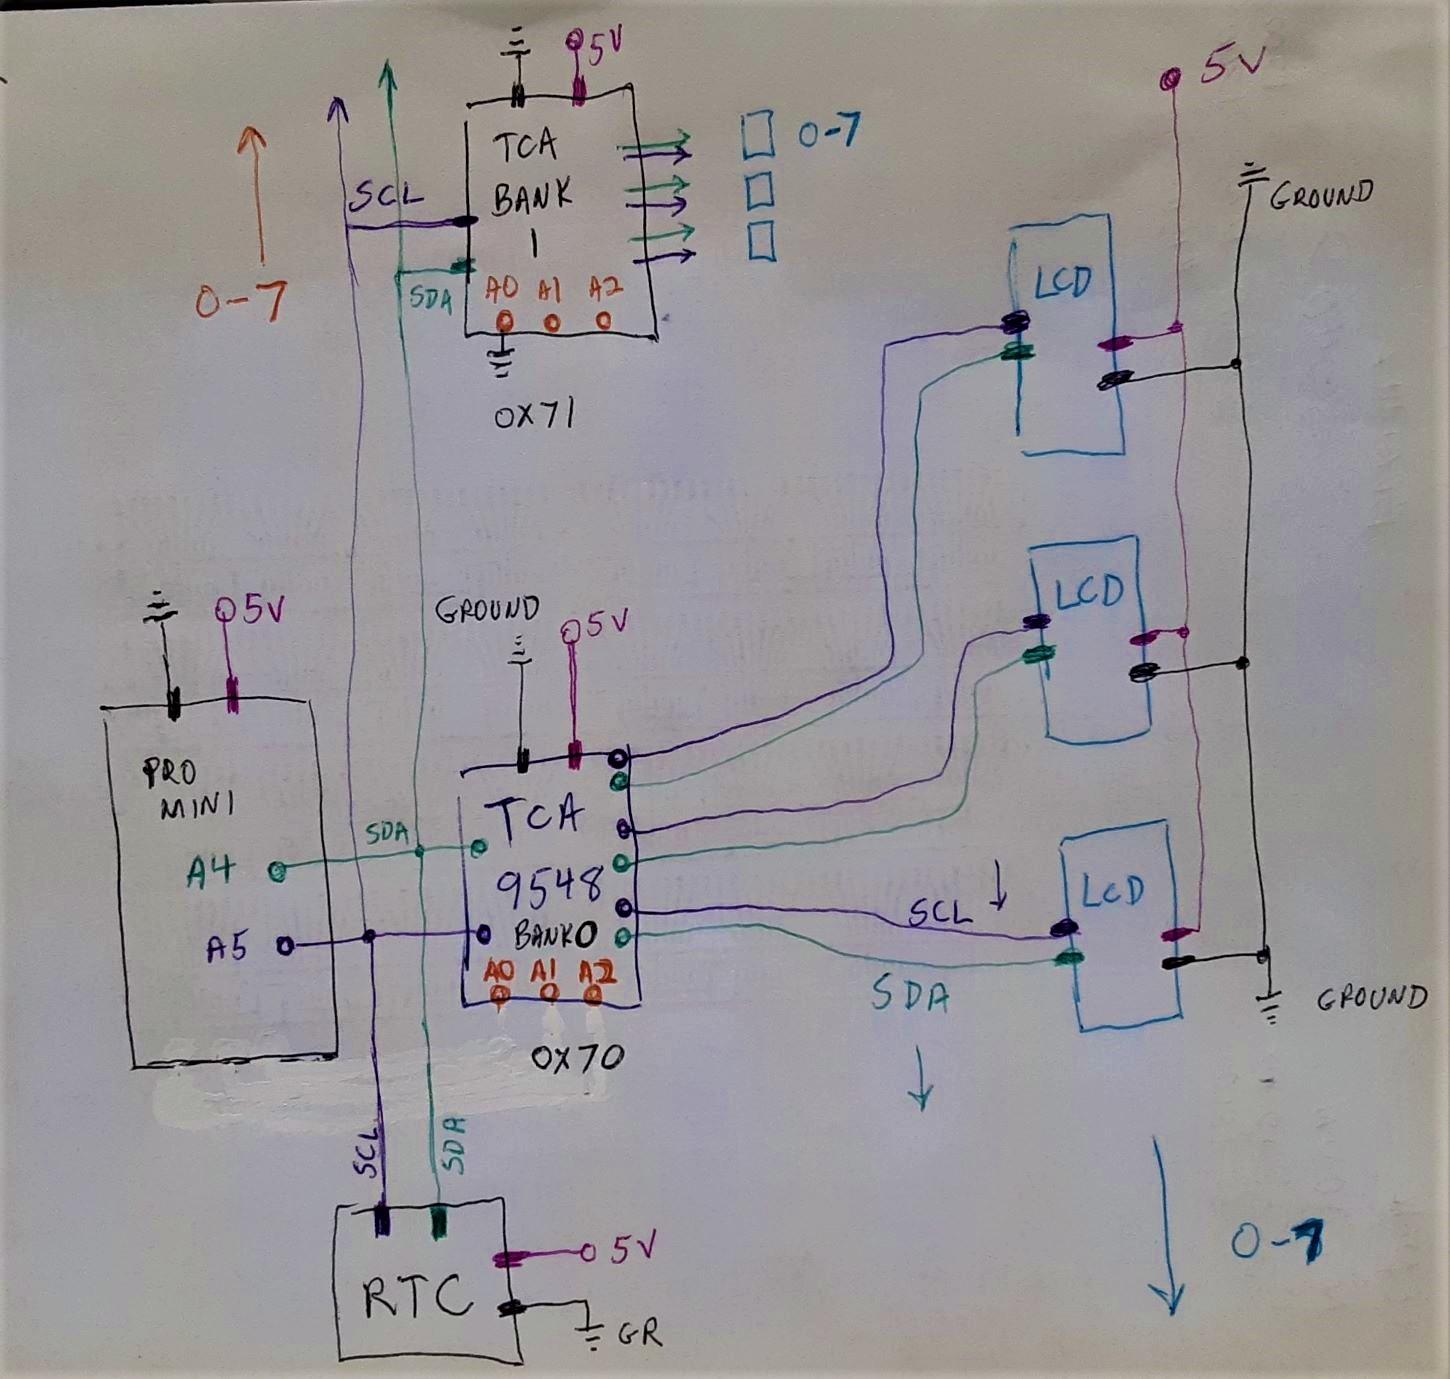 5V
5V
TCA
BANK
1
0-7
GROUND
SCL
SDA
0-7
A0 A1 A2
0X71
LCD
5V
GROUND
5V
LCD
PRO
MINI
SDA
TCA
9548
BANK0
A4
A5
A0 A1 A2
0X70
LCD
SCL
SDA
GROUND
SCL
SDA
0-7
RTC
5V
GR